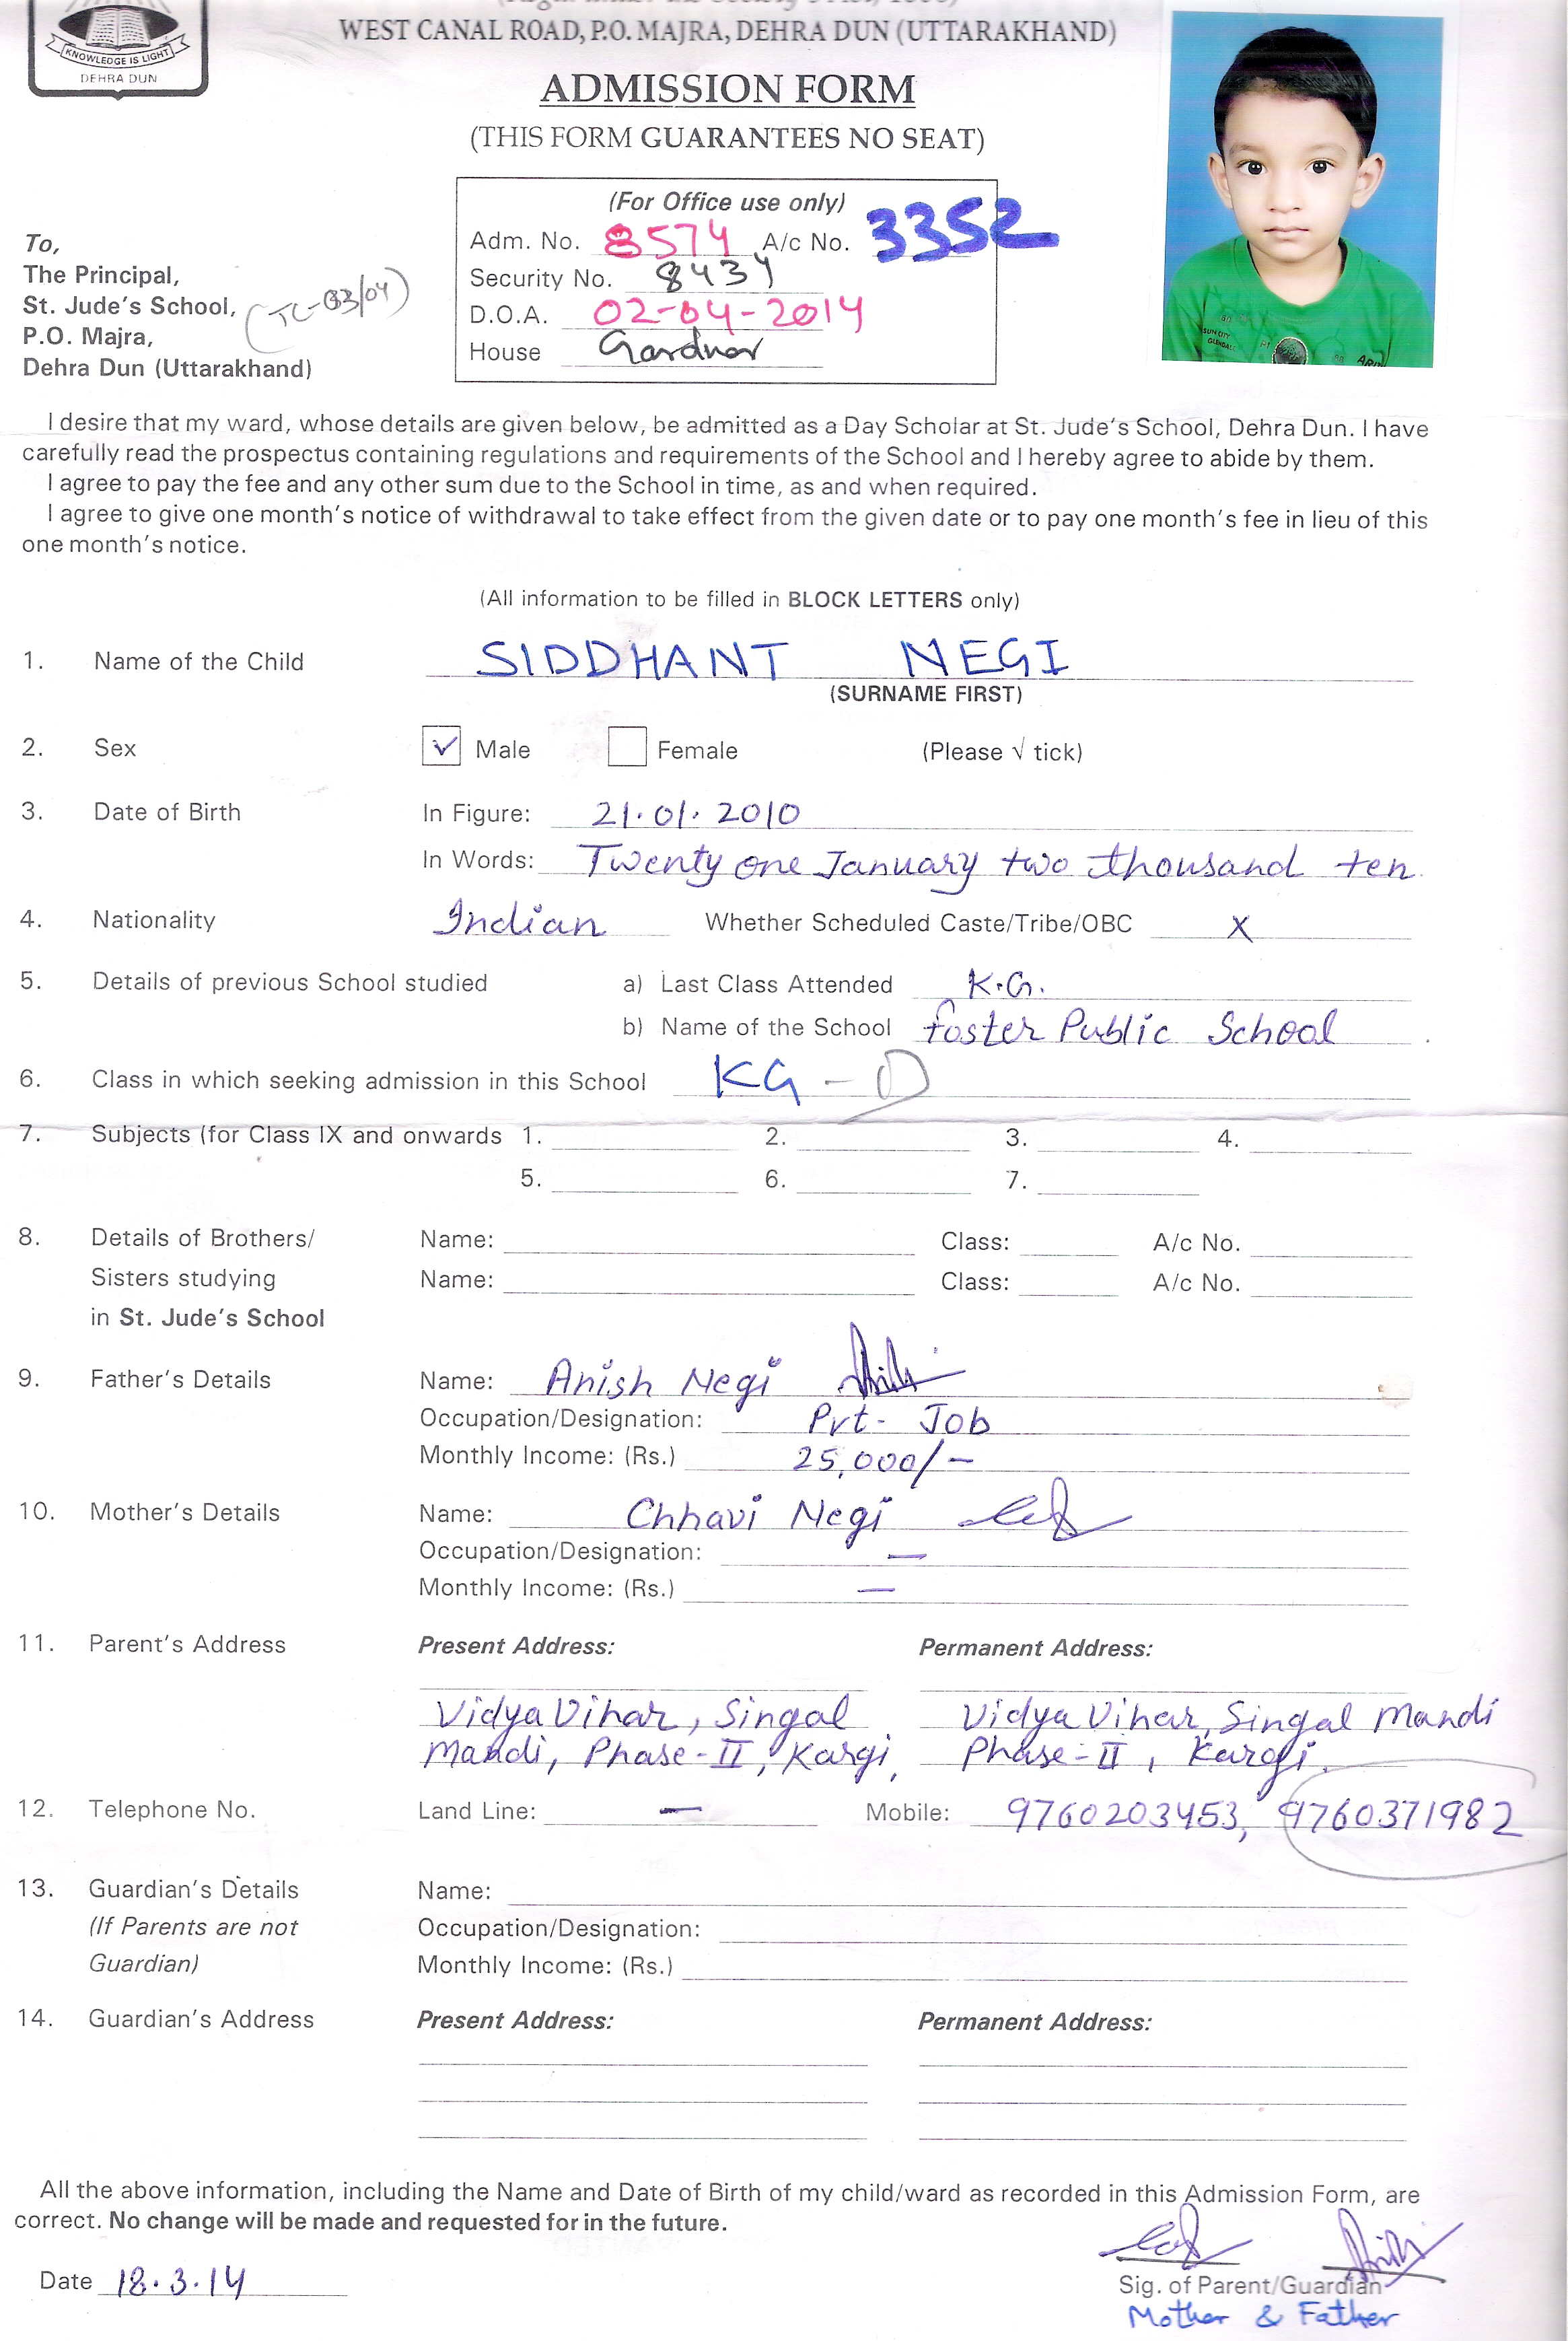 WEST CANAL ROAD, P.O. MAJRA, DEHRA DUN (UTTARAKHAND)
KNOWLEDGE IS LIGHT
DEHRA DUN
ADMISSION FORM
(THIS FORM GUARANTEES NO SEAT)
(For Office use only)
Adm. No. 8574 A/c No. 3352
Security No. 8434
D.O.A. 02-04-2014
House Gardner
To,
The Principal,
St. Jude's School,
P.O. Majra,
Dehra Dun (Uttarakhand)
(TC-03/04)
I desire that my ward, whose details are given below, be admitted as a Day Scholar at St. Jude's School, Dehra Dun. I have
carefully read the prospectus containing regulations and requirements of the School and I hereby agree to abide by them.
I agree to pay the fee and any other sum due to the School in time, as and when required.
I agree to give one month's notice of withdrawal to take effect from the given date or to pay one month's fee in lieu of this
one month's notice.
(All information to be filled in BLOCK LETTERS only)
1. Name of the Child SIDDHANT NEGI
(SURNAME FIRST)
2. Sex ✓ Male Female (Please √ tick)
3. Date of Birth In Figure: 21.01.2010
In Words: Twenty one January two thousand ten
4. Nationality Indian Whether Scheduled Caste/Tribe/OBC X
5. Details of previous School studied a) Last Class Attended K.G.
b) Name of the School foster Public School
6. Class in which seeking admission in this School KG - D
7. Subjects (for Class IX and onwards 1. 2. 3. 4.
5. 6. 7.
8. Details of Brothers/ Name: Class: A/c No.
Sisters studying Name: Class: A/c No.
in St. Jude's School
9. Father's Details Name: Anish Negi
Occupation/Designation: Pvt- Job
Monthly Income: (Rs.) 25,000/-
10. Mother's Details Name: Chhavi Negi
Occupation/Designation: —
Monthly Income: (Rs.) —
11. Parent's Address Present Address: Permanent Address:
Vidya Vihar, Singal Vidya Vihar, Singal Mandi
Mandi, Phase-II, Kargi, Phase-II, Kargi.
12. Telephone No. Land Line: — Mobile: 9760203453, 9760371982
13. Guardian's Details Name:
(If Parents are not Occupation/Designation:
Guardian) Monthly Income: (Rs.)
14. Guardian's Address Present Address: Permanent Address:
All the above information, including the Name and Date of Birth of my child/ward as recorded in this Admission Form, are
correct. No change will be made and requested for in the future.
Date 18.3.14
Sig. of Parent/Guardian
Mother & Father